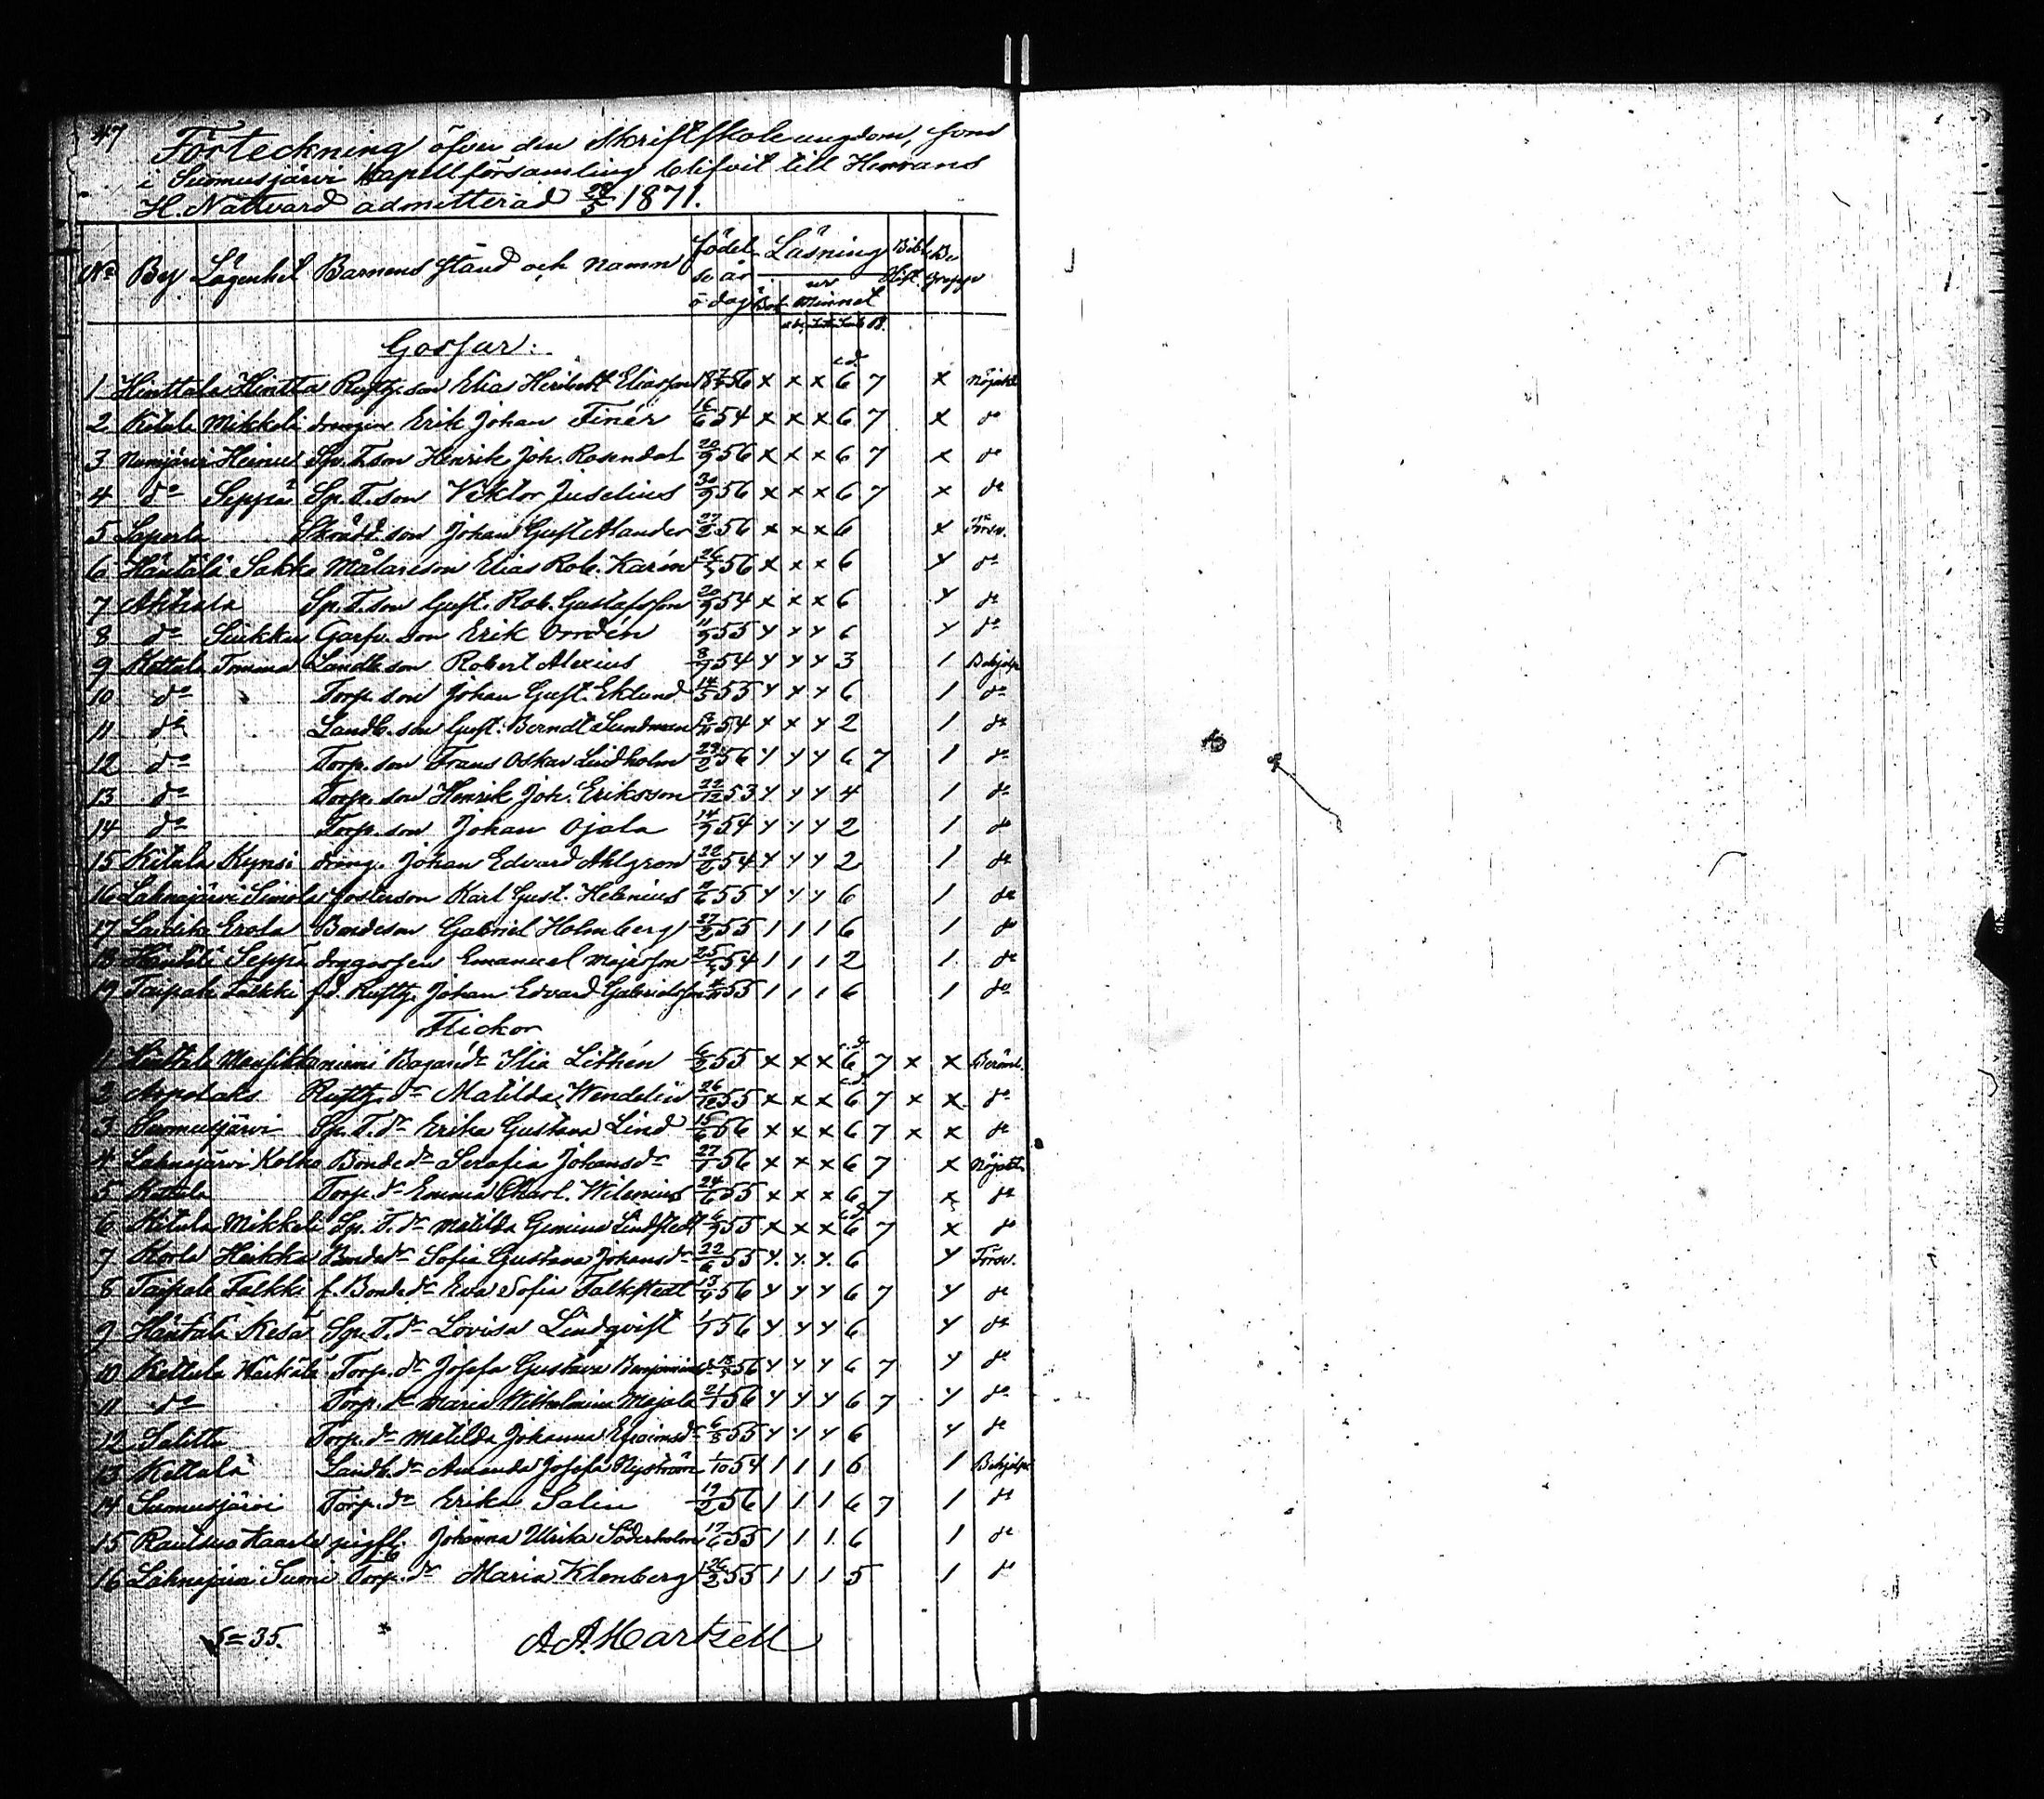 47
Förteckning öfver den Skriftskoleungdom, som
i Suomusjärvi Kapellförsamling blifvit till Herrans
H. Nattvard admitterad 28/5 1871.
No By Lägenhet Barnens stånd och namn Födelse år o dag Läsning Bok ur Minnet Bibl. Hist. Begrepp
Gossar:
1 Hinttala Hintta Rustg. son Elia Heribert Eliasson 56 x x x 6 c.d. 7 x Nöjakt.
2 Kitula Mikkeli drengen Erik Johan Finér 16/6 54 x x x 6 7 x do
3 Numijärvi Sp. T. son Henrik Joh. Rosendal 20/9 56 x x x 6 7 x do
4 do Seppä Sp. T. son Viktor Juselius 30/9 56 x x x 6 7 x do
5 Laperla Skrädd. son Johan Gust Alander 27/2 56 x x x 6 x Försv.
6 Häntälä Sakko Målareson Elias Rob. Karén 56 x x x 6 y do
7 Ahtiala Sp. T. son Gust. Rob. Gustafsson 20/9 54 x x x 6 y do
8 do Garfv. son Erik Nordén 11/9 55 y x y 6 y do
9 Kettula Tomma Landb. son Robert Alexius 54 y y y 3 1 Behjelp.
10 do Torp. son Johan Gust. Eklund 14/5 55 y x y 6 1 do
11 do Landb. son Gust. Berndt Sundman 54 x x y 2 1 do
12 do Torp. son Frans Oskar Lindholm 29/2 56 y y y 6 7 1 do
13 do Torp. son Henrik Joh. Eriksson 22/12 53 y y y 4 1 do
14 do Torp. son Johan Ojala 14/9 54 y y y 2 1 do
15 Kitula Kynsi dräng. Johan Edvard Ahlgren 54 y y y 2 1 do
16 Lahnajärvi Simola fosterson Karl Gust. Helenius 55 y y y 6 1 do
17 Laidike Erola Bondeson Gabriel Holmberg 27/2 55 1 1 1 6 1 do
18 Häntälä Seppä drgossen Emanuel 25/ 54 1 1 1 2 1 do
19 Taipale Falkki f.d. Rustg. Johan Edvard Gabrielsson 55 1 1 1 6 1 do
Flickor
1 Bagared:r Ilia Lithén 6/2 55 x x x 6 c.d. 7 x x Beröml.
2 Arpalaks Rustg. d:r Matilda Wendelin 26/12 55 x x x 6 c.d. 7 x x do
3 Suomusjärvi Sp. T. d:r Erika Gustava Lind 15/6 56 x x x 6 7 x x do
4 Lahnajärvi Kolho Bonde d:r Serafia Johansd:r 27/1 56 x x x 6 7 x Nöjakt.
5 Kettula Torp. d:r Emma Charl. Wilenius 24/6 55 x x x 6 7 x do
6 Kitula Mikkeli Sp. T. d:r Matilda Gemina Lindstedt 6/9 55 x x x 6 c.d. 7 x do
7 Heikka Bonded:r Sofia Gustava Johansd:r 22/6 55 y y y 6 y Försv.
8 Taipale Falkki f. Bonded:r Eva Sofia Falkstedt 13/4 56 y y y 6 7 y do
9 Häntälä Kesä Sp. T. d:r Lovisa Lindqvist 1/1 56 y y y 6 y do
10 Kettula Härkälä Torp. d:r Josefa Gustava Benjaminsd:r 56 y y y 6 7 y do
11 do Torp. d:r Maria Wilhelmina Majala 21/1 56 y y y 6 7 y do
12 Salitta Torp. d:r Matilda Johanna Efraimsd:r 6/8 55 y y y 6 y do
13 Kettula Landb. d:r Amanda Josefa Nyström 1/10 54 1 1 1 6 1 Behjelp.
14 Suomusjärvi Torp. d:r Erika Salin 19/2 56 1 1 1 6 7 1 do
15 Rautsuo Kaarla pigfl. Johanna Ulrika Söderholm 17/6 55 1 1 1 6 1 do
16 Lahnajärvi Suomi Torp. d:r Maria Klenberg 26/2 55 1 1 1 5 1 do
S:a 35.
A. A. Hartzell